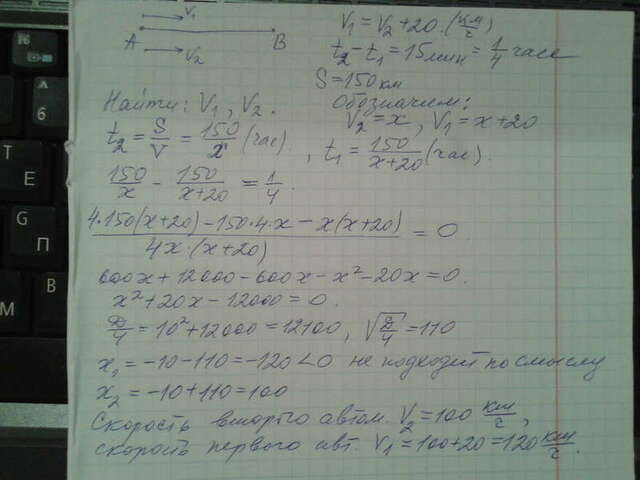 V₁
A B
V₂
V₁ = V₂ + 20 (км/ч)
t₂ - t₁ = 15 мин = 1/4 часа
S = 150 км
Найти: V₁, V₂.
Обозначем:
V₂ = x, V₁ = x + 20
t₂ = S/V = 150/x (час), t₁ = 150/(x+20) (час).
150/x - 150/(x+20) = 1/4.
(4·150(x+20) - 150·4·x - x(x+20))/(4x·(x+20)) = 0
600x + 12000 - 600x - x² - 20x = 0.
x² + 20x - 12000 = 0.
D/4 = 10² + 12000 = 12100, √(D/4) = 110
x₁ = -10 - 110 = -120 < 0 не подходит по смыслу
x₂ = -10 + 110 = 100
Скорость второго автом. V₂ = 100 км/ч,
скорость первого авт. V₁ = 100 + 20 = 120 км/ч.
A
6
T
E
G
П
M
B
И